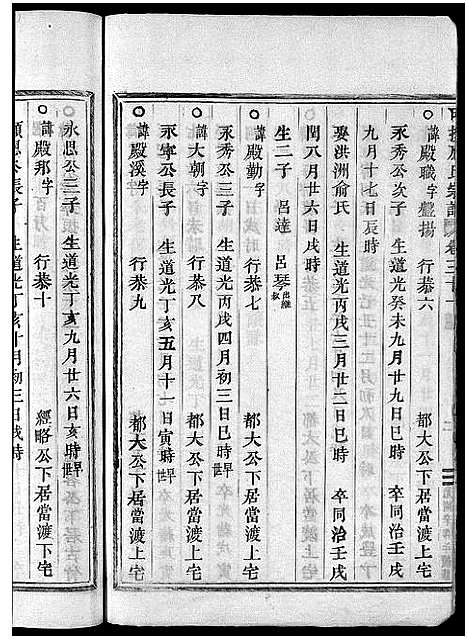 氏宗譜 卷三十
諱殿職字豔揚 行恭六 都大公下居當渡上宅
永秀公次子 生道光癸未九月廿九日巳時 卒同治壬戌
九月十七日辰時
娶洪洲俞氏 生道光丙戌三月廿二日巳時 卒同治壬戌
閏八月廿六日戌時
生二子 呂達 呂琴出繼叔
諱殿勤字 行恭七 都大公下居當渡上宅
永秀公三子 生道光丙戌四月初三日巳時 卒
諱大朝字 行恭八 都大公下居當渡上宅
永寧公長子 生道光丁亥五月十一日寅時 卒
諱殿溪字 行恭九 都大公下居當渡上宅
永思公三子 生道光丁亥九月廿六日亥時
諱殿邦字 行恭十 經略公下居當渡下宅
思公長子 生道光丁亥十月初三日戌時